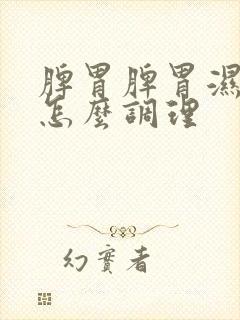 脾胃脾胃濕
怎麼調理
幻實者